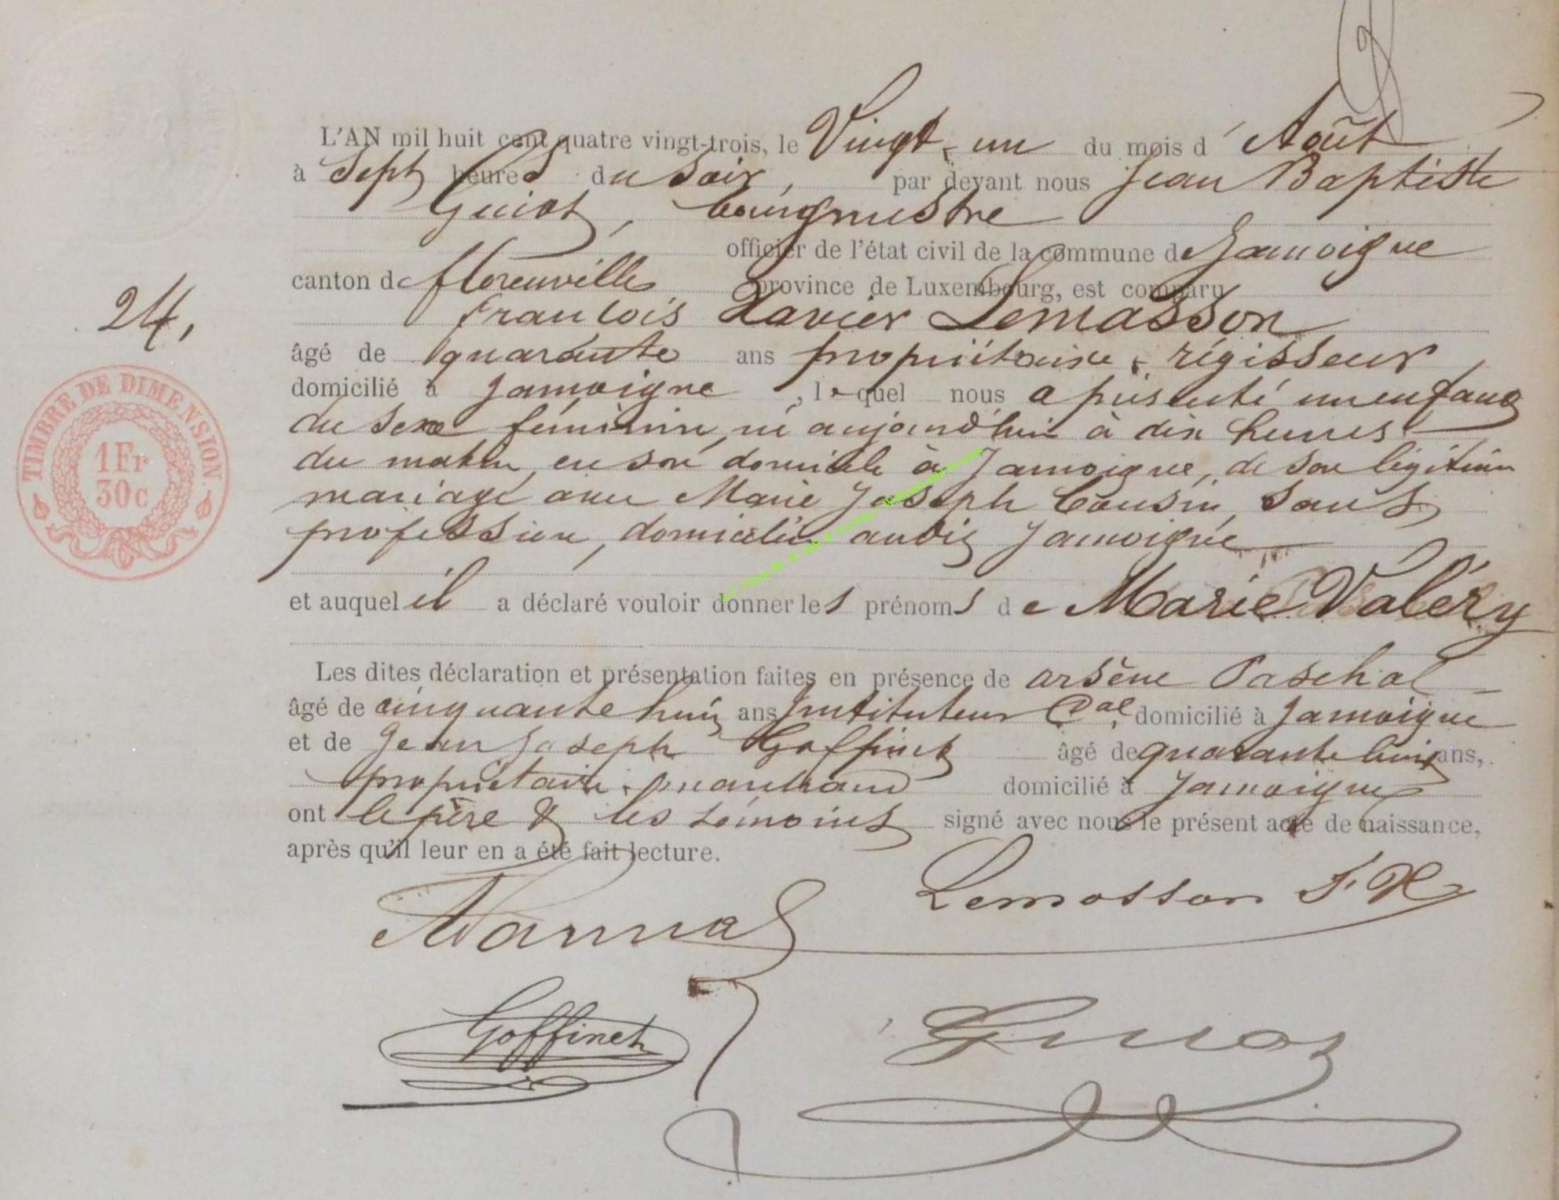 L'AN mil huit cent quatre vingt-trois, le Vingt-un du mois d'Août
à Sept heures du soir, par devant nous Jean Baptiste
Guiot, bourgmestre
officier de l'état civil de la commune de Jamoigne
canton de florenville province de Luxembourg, est comparu
francois Xavier Lemasson
24.
âgé de quarante ans propriétaire & régisseur
domicilié à Jamoigne, lequel nous a présenté un enfant
du sexe féminin, né aujourd'hui à dix heures
du matin, en son domicile à Jamoigne, de son légitime
mariage avec Marie Joseph Cousin, sans
profession, domiciliée audit Jamoigne
TIMBRE DE DIMENSION.
1Fr
30c
et auquel il a déclaré vouloir donner les prénoms de Marie Valéry
Les dites déclaration et présentation faites en présence de arsène Paschal
âgé de cinquante huit ans Instituteur Cal domicilié à Jamoigne
et de Jean Joseph Goffinet âgé de quarante huit ans,
propriétaire, marchand domicilié à Jamoigne
ont le père & les témoins signé avec nous le présent acte de naissance,
après qu'il leur en a été fait lecture.
Lemasson F X
Goffinet
Guiot